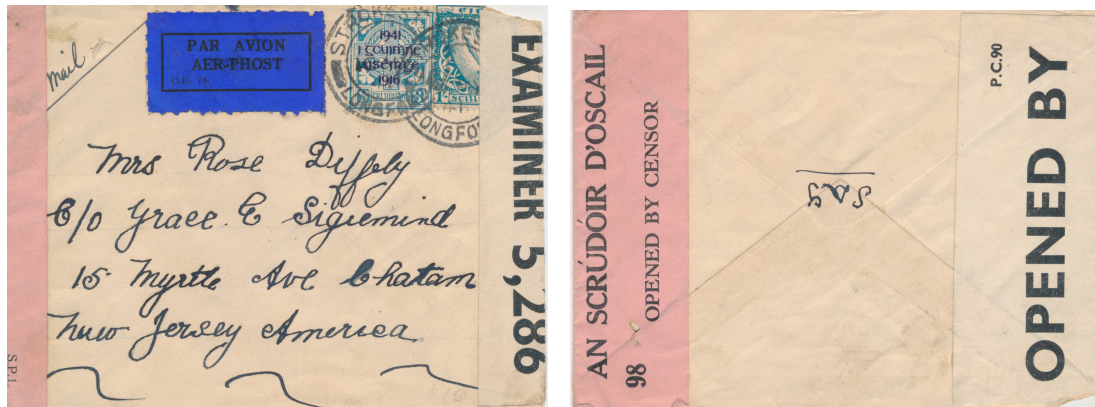 mail
PAR AVION
AER-PHOST
1941
I gCUIMHNE
AISÉIRGE
1916
LONGFO
EXAMINER 5,286
Mrs Rose Diffely
C/o Grace. E Sigiemind
15 Myrtle Ave Chatam
New Jersey America
S.P.I.
AN SCRÚDÓIR D'OSCAIL
98 OPENED BY CENSOR
P.C.90
OPENED BY